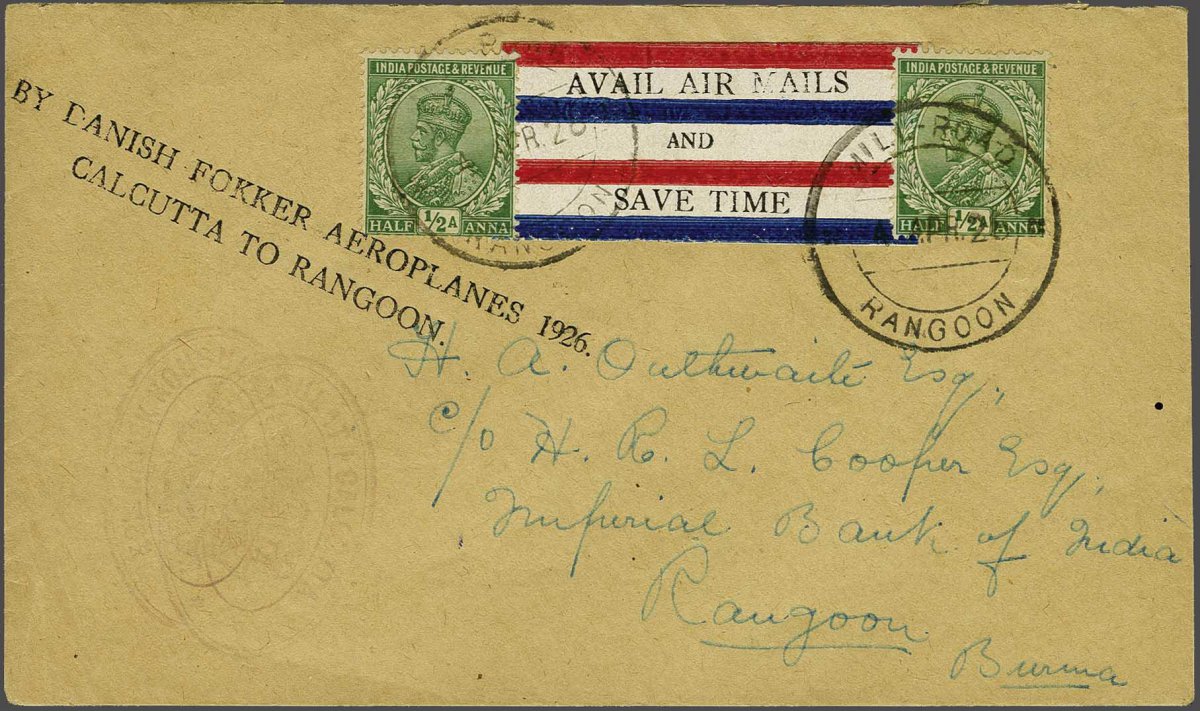 BY DANISH FOKKER AEROPLANES 1926.
CALCUTTA TO RANGOON.
INDIA POSTAGE & REVENUE
HALF 1/2A ANNA
AVAIL AIR MAILS
AND
SAVE TIME
INDIA POSTAGE & REVENUE
HALF 1/2A ANNA
RANGOON
ROAD
RANGOON
H. A. Outhwaite Esq.,
c/o H. R. L. Cooper Esq.,
Imperial Bank of India
Rangoon
Burma